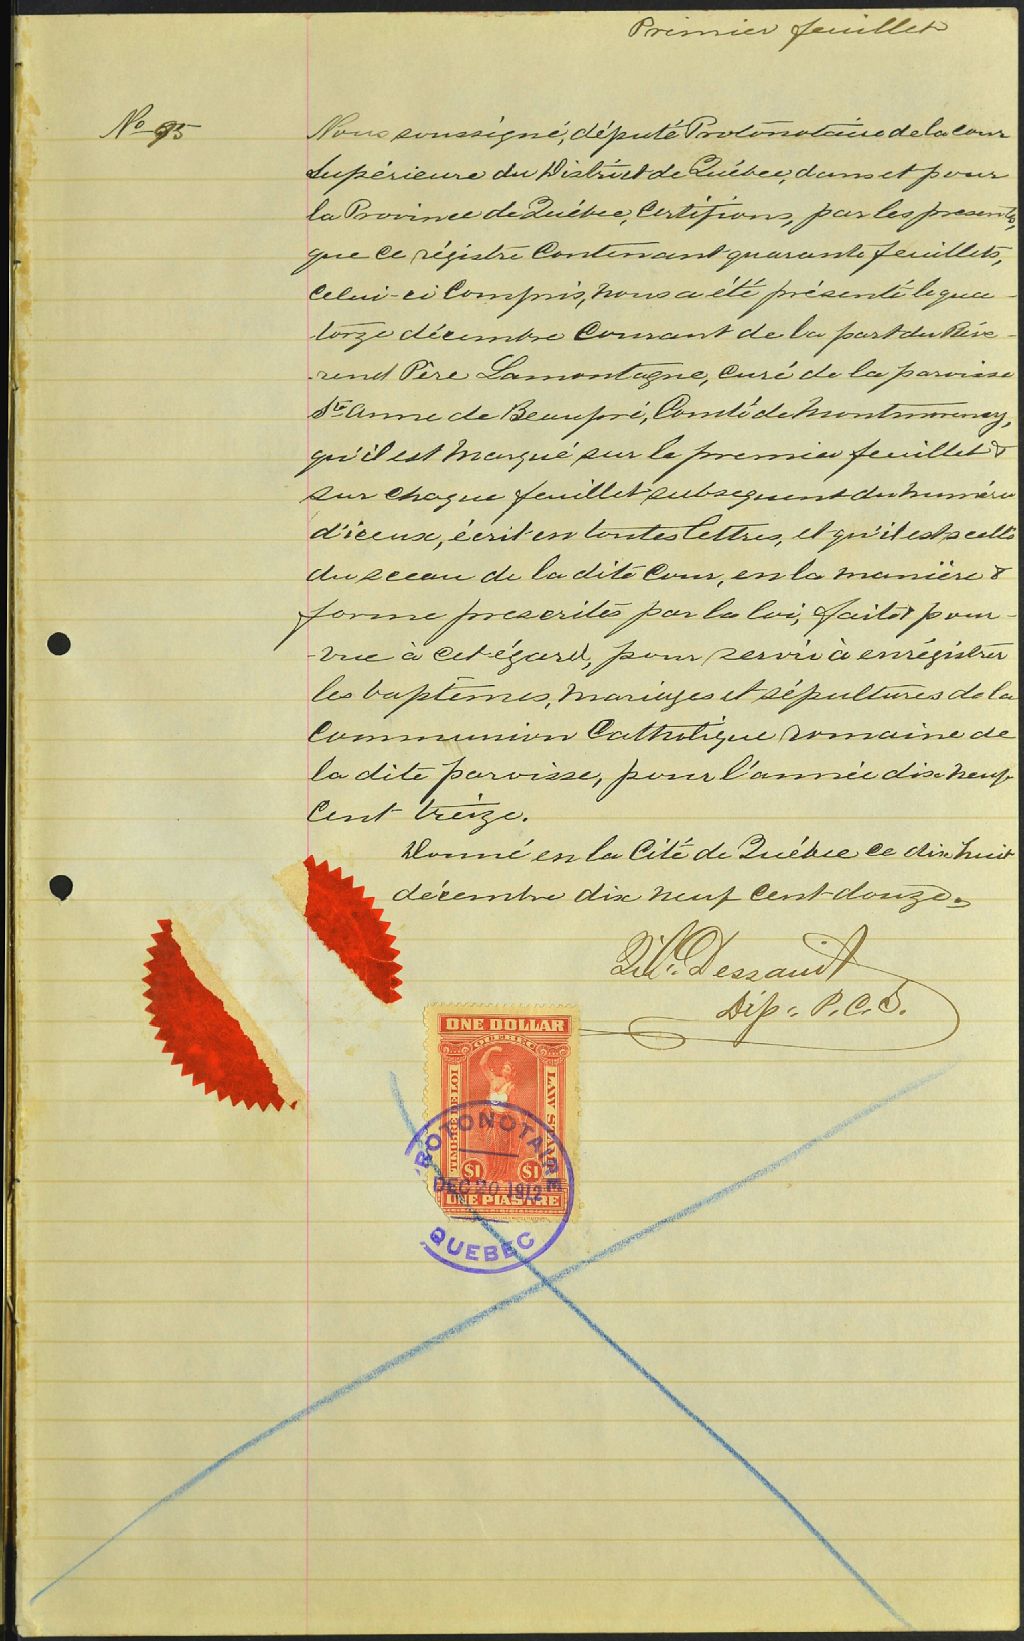 Premier feuillet
No 95
Nous soussigné, député Protonotaire de la cour
Supérieure du District de Québec, dans et pour
la Province de Québec, Certifions, par les presentes,
que ce régistre Contenant quarante feuillets,
Celui-ci Compris, nous a été présenté le qua-
torze décembre Courant de la part du Révé-
-rend Père Lamontagne, curé de la paroisse
Ste Anne de Beaupré, Comté de Montmorency,
qu'il est Marqué sur le premier feuillet &
sur chaque feuillet subsequent du numéro
d'iceux, écrit en toutes lettres, et qu'il est scellé
du sceau de la dite Cour, en la manière &
forme prescrites par la loi, faite & pour-
-vue à cet égard, pour servir à enrégistrer
les baptêmes, Mariages et sépultures de la
Communion Catholique romaine de
la dite paroisse, pour l'année dix neuf
Cent treize.
Donné en la Cité de Québec ce dix huit
décembre dix neuf cent douze.
Dessault
Dép. P.C.S.
ONE DOLLAR
QUEBEC
TIMBRE DE LOI
LAW S
$1 $1
UNE PIASTRE
ROTONOTAIRE
DEC 20 1912
QUEBEC